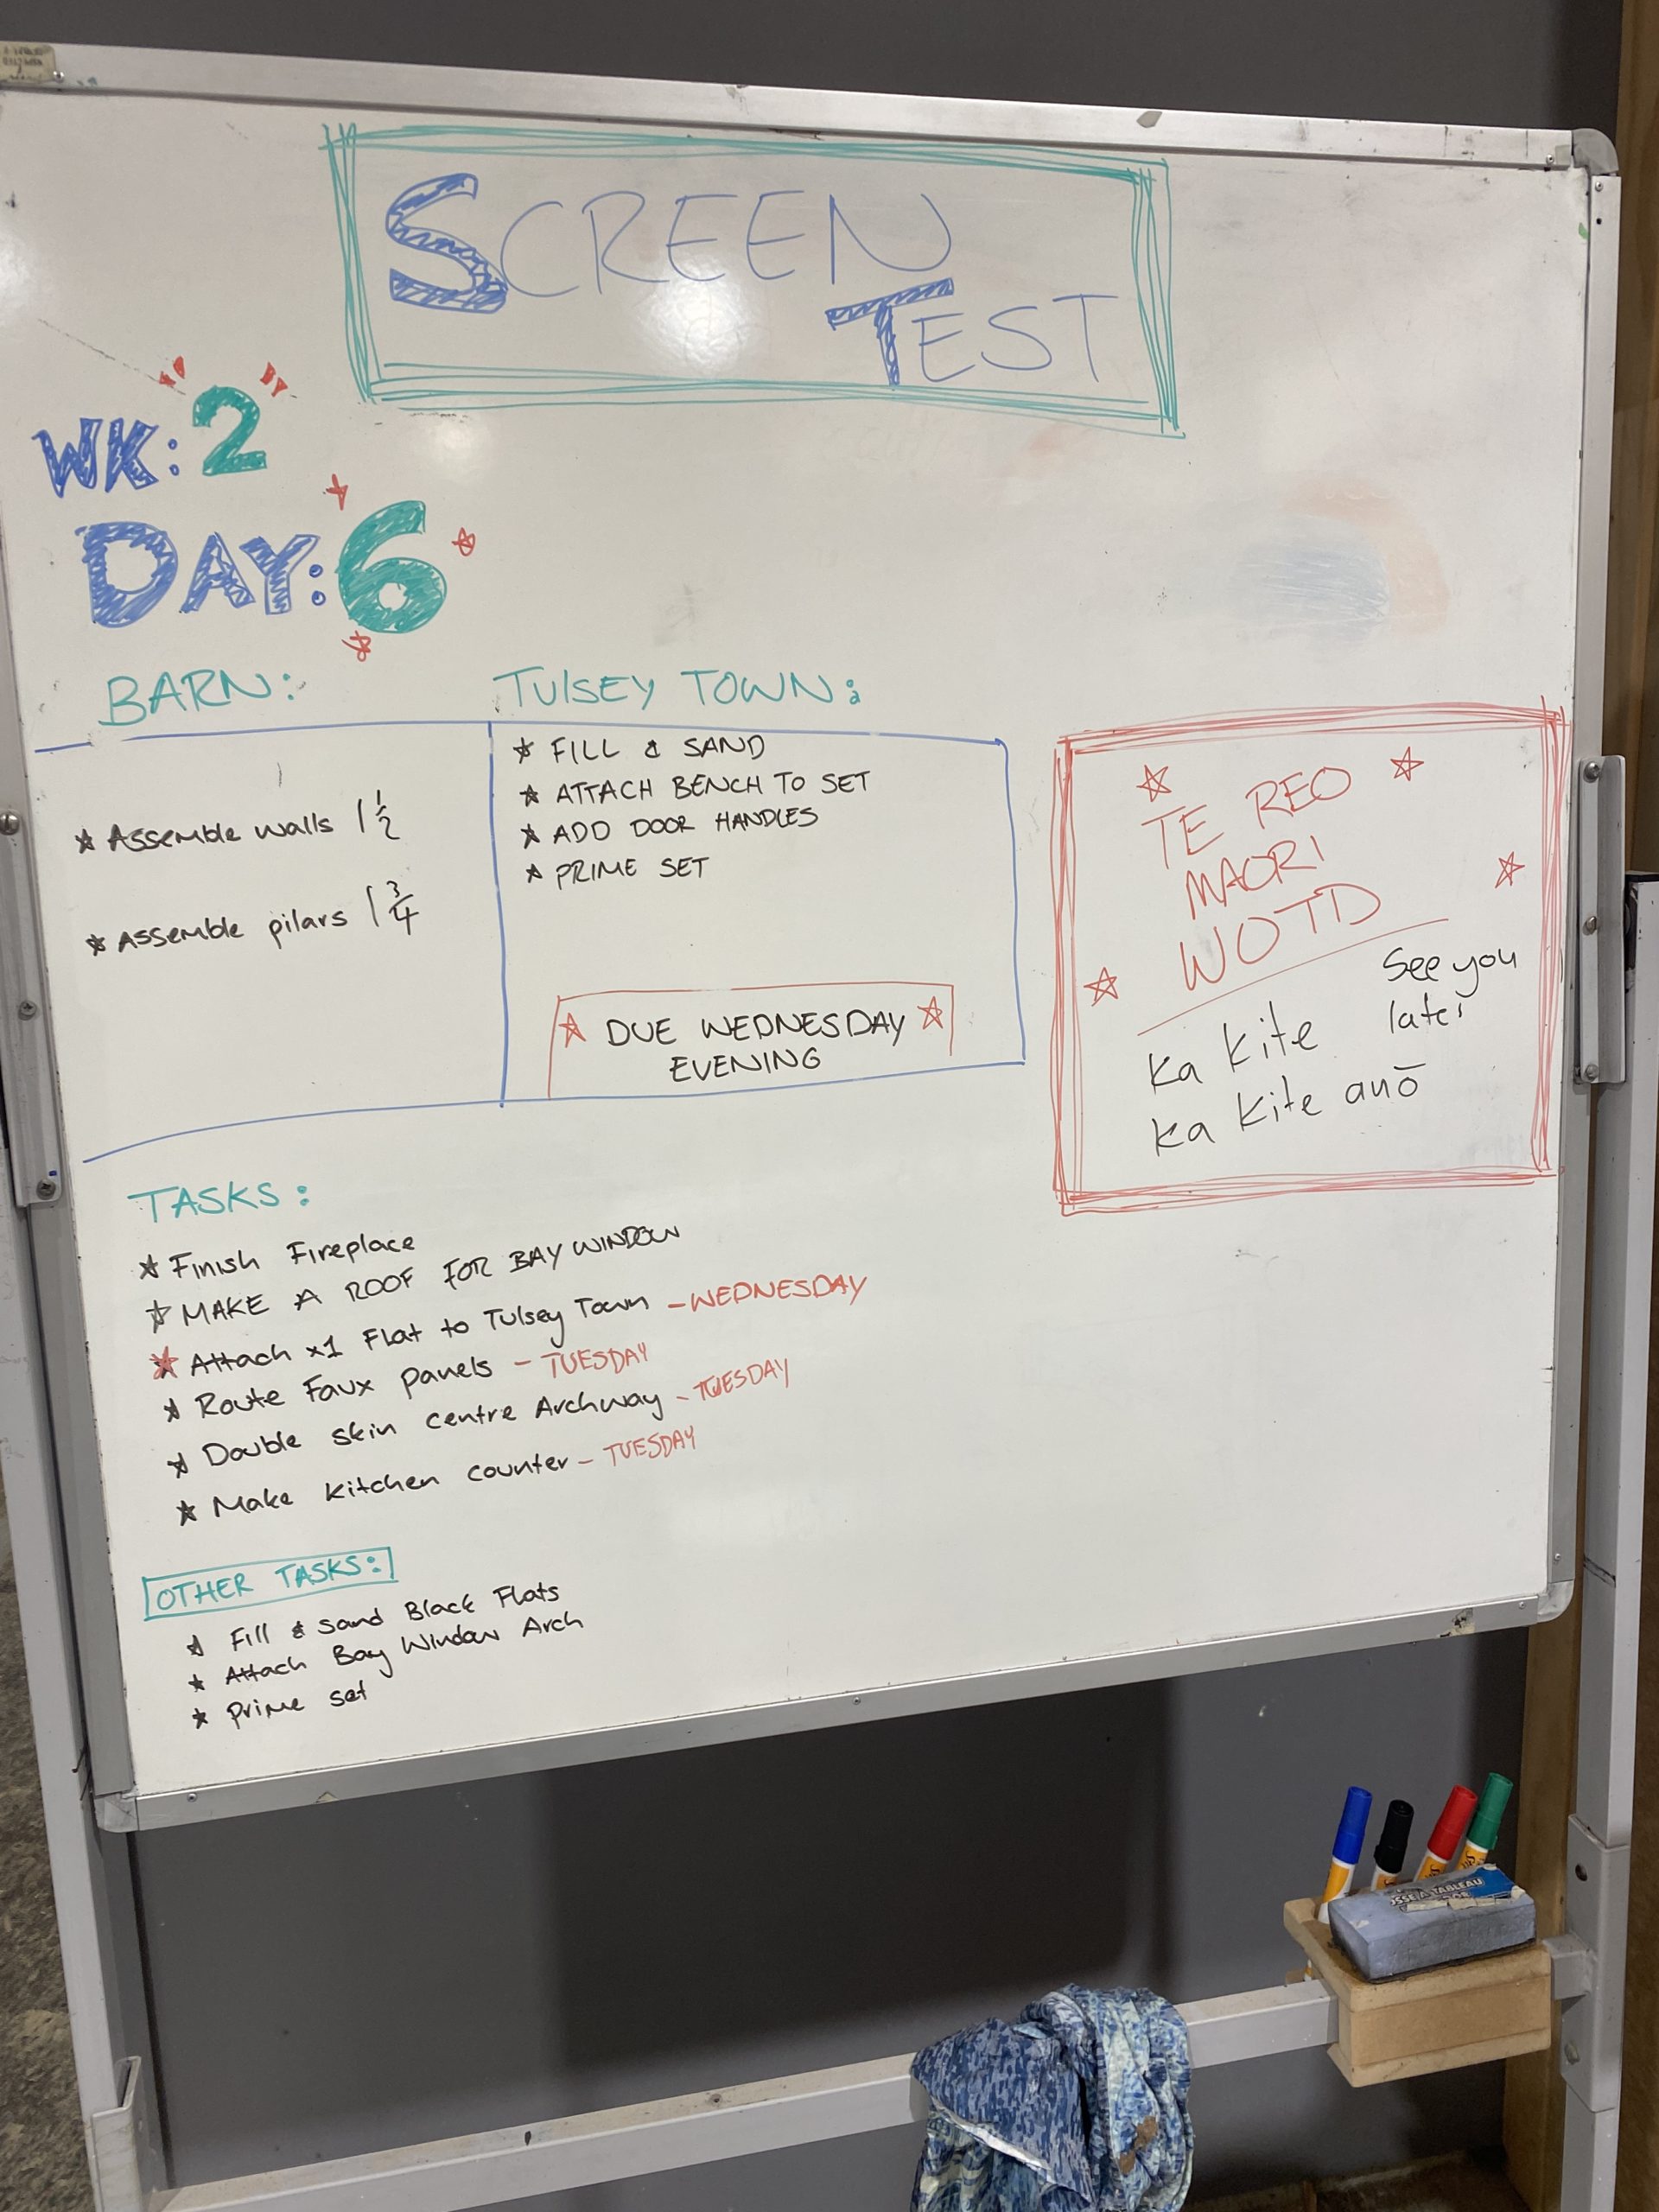 SCREEN
TEST
WK: 2
DAY: 6
BARN:
★ Assemble walls 1 1/2
★ Assemble pilars 1 3/4
TULSEY TOWN:
★ FILL & SAND
★ ATTACH BENCH TO SET
★ ADD DOOR HANDLES
★ PRIME SET
☆ DUE WEDNESDAY ☆
EVENING
TE REO
MAORI
WOTD
See you
later
Ka Kite
Ka Kite anō
TASKS:
★ Finish Fireplace
★ MAKE A ROOF FOR BAY WINDOW
★ Attach x1 Flat to Tulsey Town - WEDNESDAY
★ Route Faux Panels - TUESDAY
★ Double skin centre Archway - TUESDAY
★ Make Kitchen counter - TUESDAY
OTHER TASKS:
★ Fill & sand Black Flats
★ Attach Bay Window Arch
★ prime set